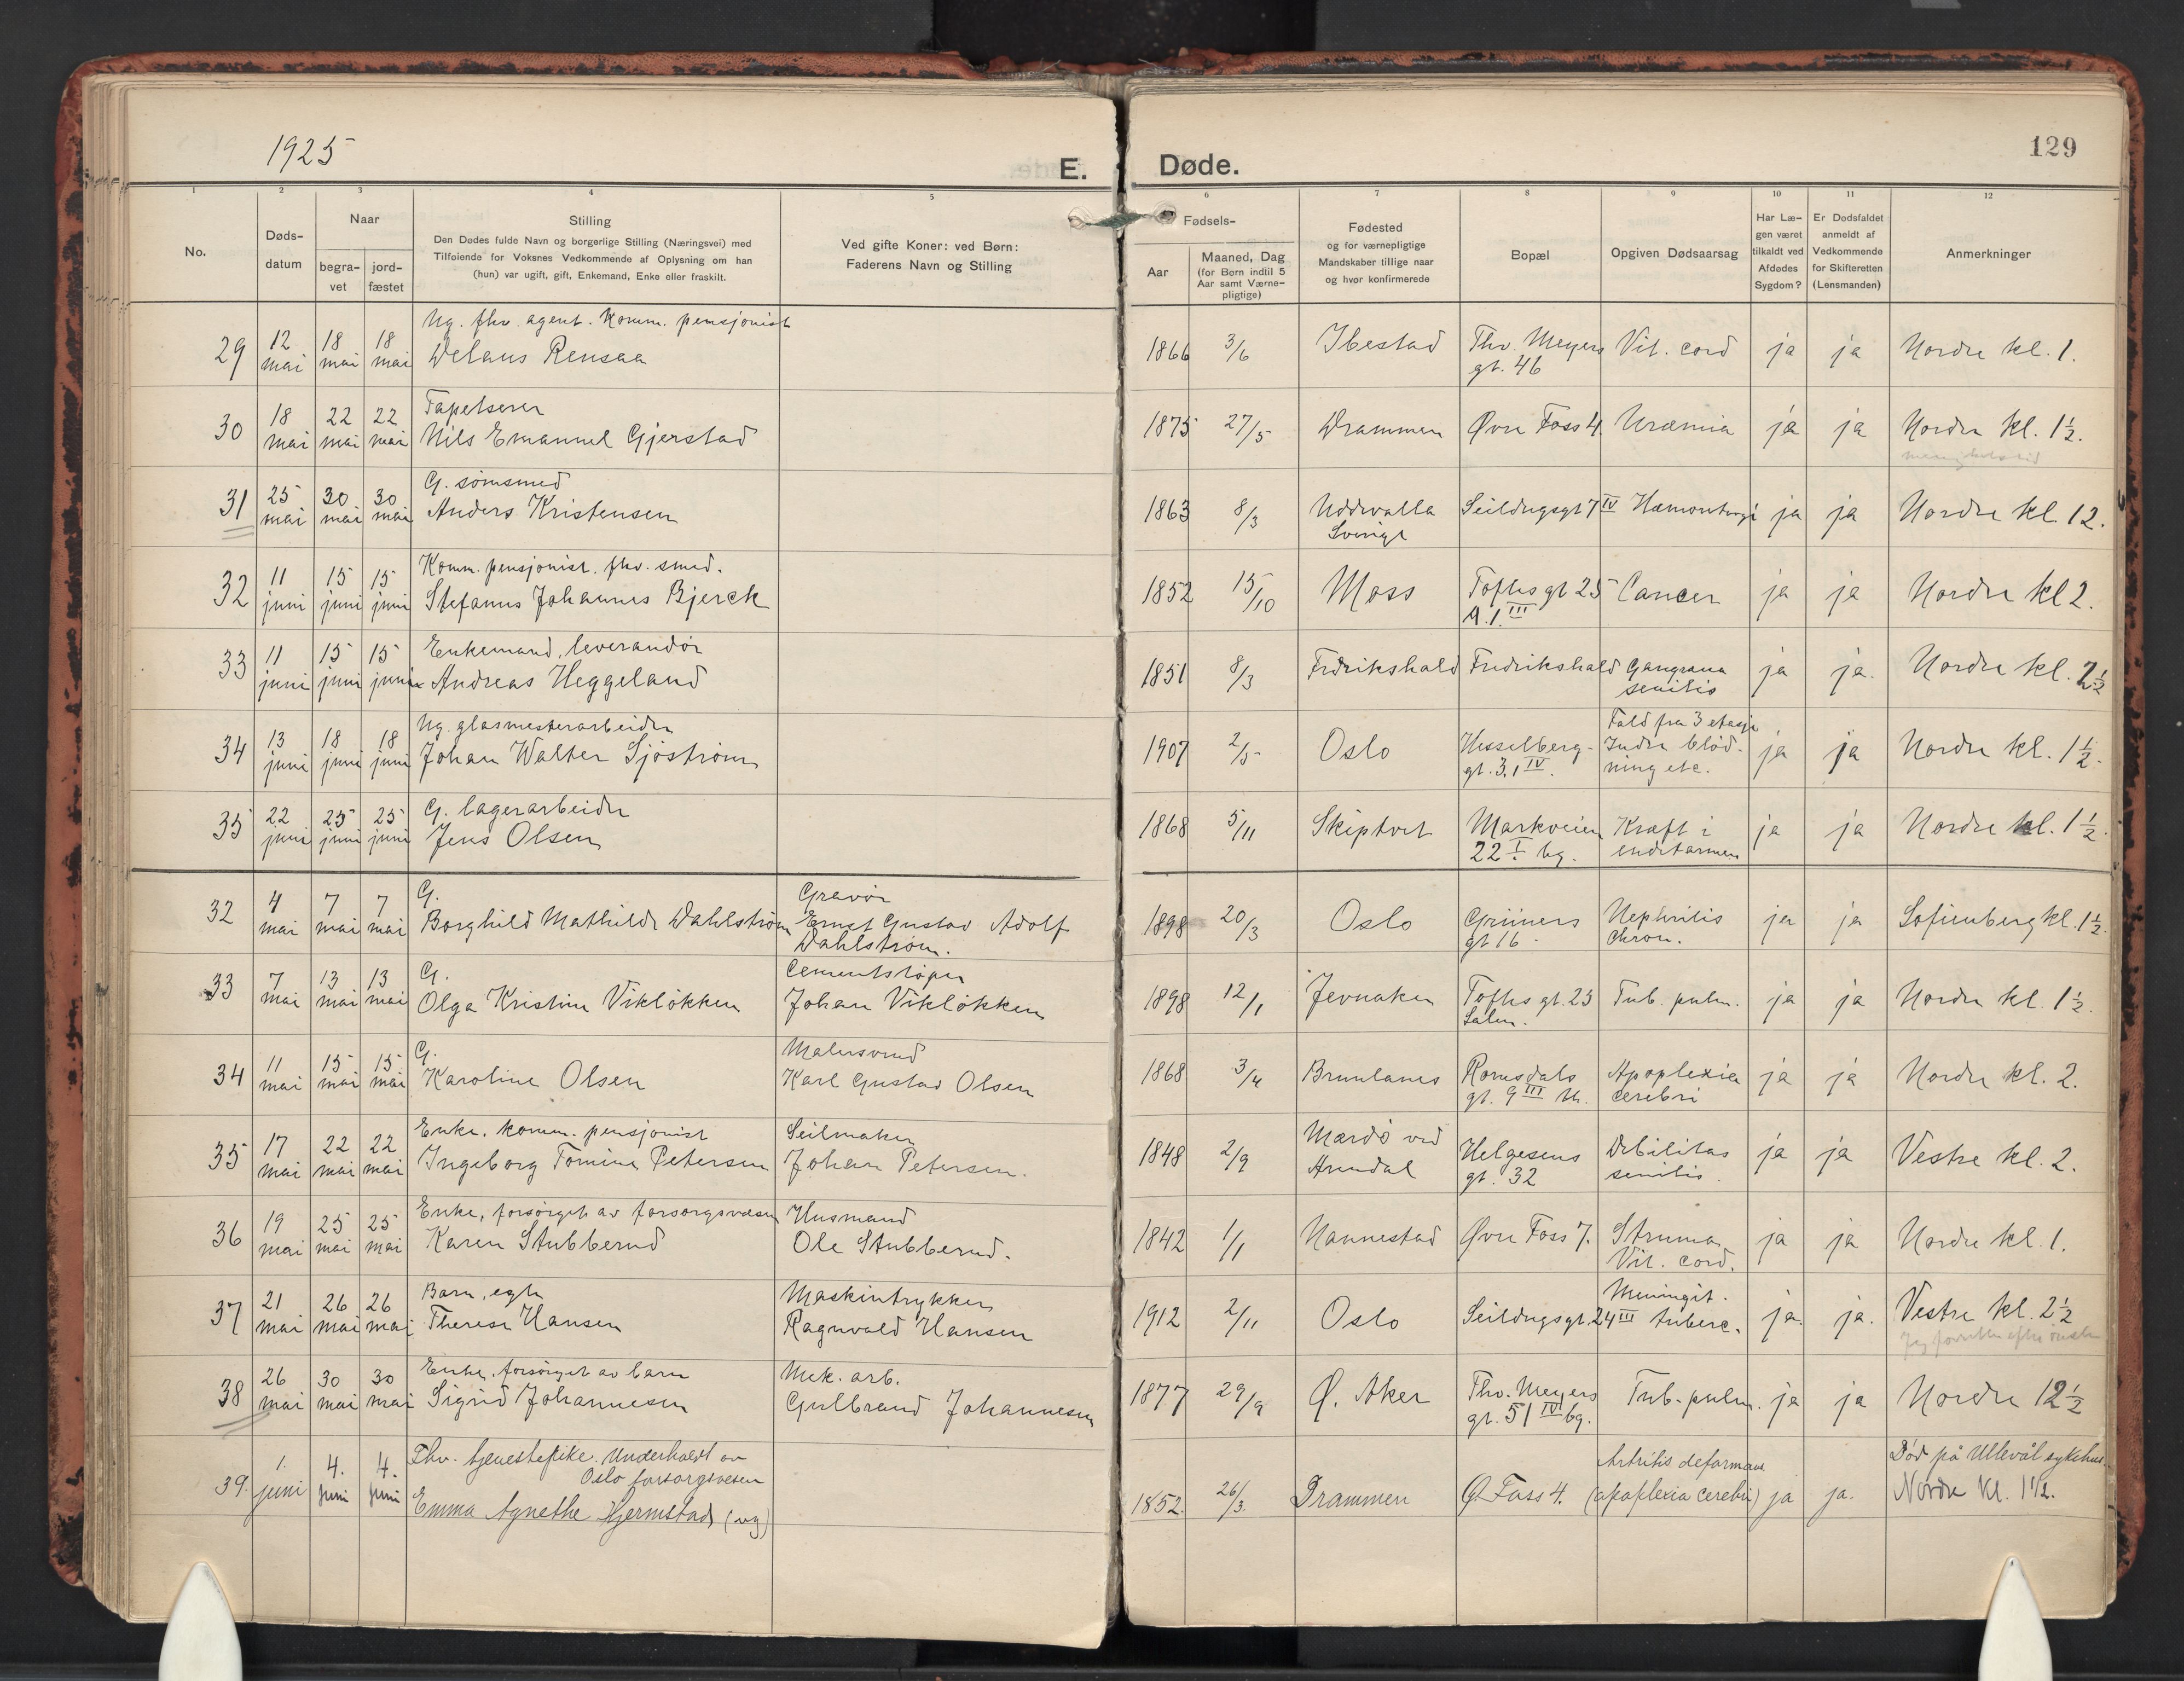 1925
E. Døde.
129
1 2 3 4 5 6 7 8 9 10 11 12
No.
Døds-
datum
Naar
begra-
vet
jord-
fæstet
Stilling
Den Dødes fulde Navn og borgerlige Stilling (Næringsvei) med
Tilføiende for Voksnes Vedkommende af Oplysning om han
(hun) var ugift, gift, Enkemand, Enke eller fraskilt.
Ved gifte Koner: ved Børn:
Faderens Navn og Stilling
Fødsels-
Aar
Maaned, Dag
(for Børn indtil 5
Aar samt Værne-
pligtige)
Fødested
og for værnepligtige
Mandskaber tillige naar
og hvor konfirmerede
Bopæl
Opgiven Dødsaarsag
Har Læ-
gen været
tilkaldt ved
Afdødes
Sygdom?
Er Dødsfaldet
anmeldt af
Vedkommende
for Skifteretten
(Lensmanden)
Anmerkninger
Ug. fhv. agent. Komm. pensjonist
29 12 mai 18 mai 18 mai Delaus Rensaa 1866 3/6 Ibestad Thv. Meyers Vit. cord ja ja Nordre kl. 1.
gt. 46
Tapetserer
30 18 mai 22 mai 22 mai Nils Emanuel Gjerstad 1875 27/5 Drammen Øvre Foss 4. Uræmia ja ja Nordre kl. 1½.
G. sømsmed
31 25 mai 30 mai 30 mai Anders Kristensen 1863 8/3 Uddevalla Seildugsgt 7 IV ja ja Nordre kl. 12.
Sverige
Komm. pensjonist. fhv. smed.
32 11 juni 15 juni 15 juni Stefanus Johannes Bjerck 1852 15/10 Moss Toftes gt 25 Cancer ja ja Nordre kl 2.
A. 1. III
Enkemand, leverandør
33 11 juni 15 juni 15 juni Andreas Heggeland 1851 8/3 Fredrikshald Fredrikshald Gangræna ja ja. Nordre kl. 2½
senilis
Ug. glasmesterarbeider Fald fra 3 etasje
34 13 juni 18 juni 18 juni Johan Walter Sjøstrøm 1907 2/5 Oslo Hesselberg- Indre blød- ja ja Nordre kl. 1½.
gt. 3. 1 IV. ning etc.
G. lagerarbeider
35 22 juni 25 juni 25 juni Jens Olsen 1868 5/11 Skiptvet Markveien Kræft i ja ja Nordre kl. 1½.
22 I. bg. endetarmen
G. Gravør
32 4 mai 7 mai 7 mai Borghild Mathilde Dahlstrøm Ernst Gustav Adolf 1898 20/3 Oslo Grüners Nephritis ja ja Sofienberg kl. 1½.
Dahlstrøm. gt 16. chron.
G. Cementstøper
33 7 mai 13 mai 13 mai Olga Kristine Vikløkken Johan Vikløkken 1898 12/1 Jevnaker Toftes gt. 23 Tub. pulm. ja ja Nordre kl. 1½.
Salem.
G. Malersvend
34 11 mai 15 mai 15 mai Karoline Olsen Karl Gustav Olsen 1868 3/4 Brunlanes Romsdals Apoplexia ja ja Nordre kl. 2.
gt. 9 III th. cerebri
Enke, komm. pensjonist Seilmaker Mærdø ved
35 17 mai 22 mai 22 mai Ingeborg Tomine Petersen Johan Petersen. 1848 2/9 Arendal Helgesens Debilitas ja ja Vestre kl. 2.
gt. 32 senilis.
Enke, forsørget av forsorgsvæsen Husmand
36 19 mai 25 mai 25 mai Karen Stubberud Ole Stubberud. 1842 1/1 Nannestad Øvre Foss 7. Struma ja ja Nordre kl. 1.
Vit. cord.
Barn, egte Maskintrykker Meningit.
37 21 mai 26 mai 26 mai Therese Hansen Ragnvald Hansen 1912 2/11 Oslo Seildugsgt. 24 III tuberc. ja. ja. Vestre kl. 2½
Enke, forsørget av barn Mek. arb.
38 26 mai 30 mai 30 mai Sigrid Johannesen Gulbrand Johannesen 1877 29/9 Ø. Aker Thv. Meyers Tub. pulm. ja ja Nordre 12½
gt. 51 IV bg.
Fhv. tjenestepike. Underholdt av Artritis deformans Død på Ullevål sykehus.
Oslo forsorgsvesen
39. 1. juni 4. juni 4. juni Emma Agnethe Hjermstad (ug) 1852. 26/3. Drammen Ø. Foss 4. (apoplexia cerebri) ja ja. Nordre Kl. 1½.